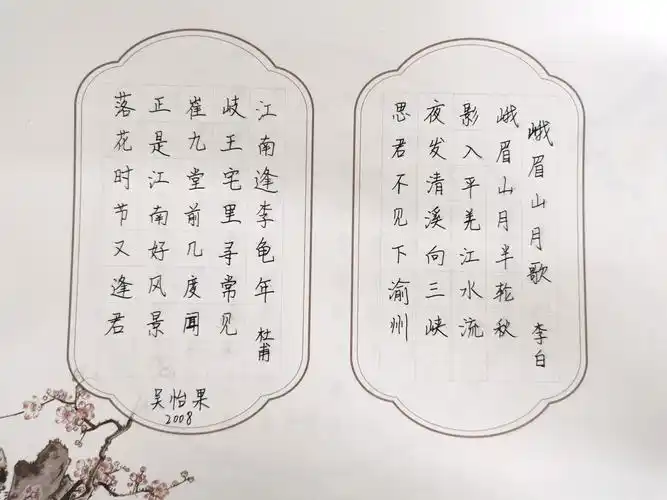 峨眉山月歌 李白
峨眉山月半轮秋
影入平羌江水流
夜发清溪向三峡
思君不见下渝州
江南逢李龟年 杜甫
岐王宅里寻常见
崔九堂前几度闻
正是江南好风景
落花时节又逢君
吴怡果
2008